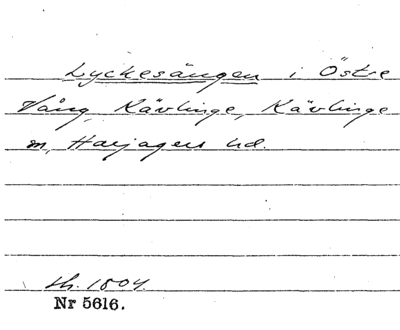 Lyckesängen i Östre
Vång, Kävlinge, Kävlinge
m, Harjagers hd.
sk. 1804
Nr 5616.